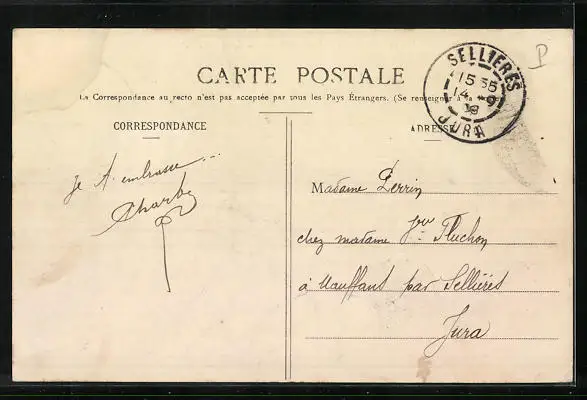 CARTE POSTALE
La Correspondance au recto n'est pas acceptée par tous les Pays Étrangers. (Se renseigner à la Poste
CORRESPONDANCE
ADRESSE
SELLIERES
15 35
14 - 9
JURA
P
Je t'embrasse...
Madame Perrin
chez madame Jne Fluchon
à Mauffans par Sellières
Jura